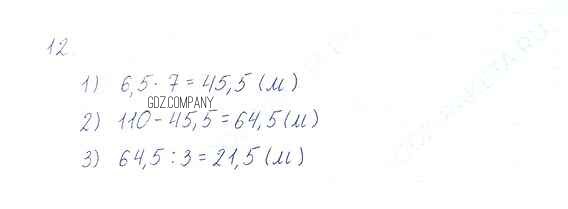 12.
1) 6,5 · 7 = 45,5 (м)
GDZ.COMPANY
2) 110 - 45,5 = 64,5 (м)
3) 64,5 : 3 = 21,5 (м)